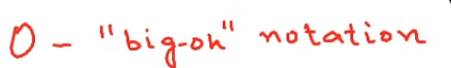 O - "big-oh" notation